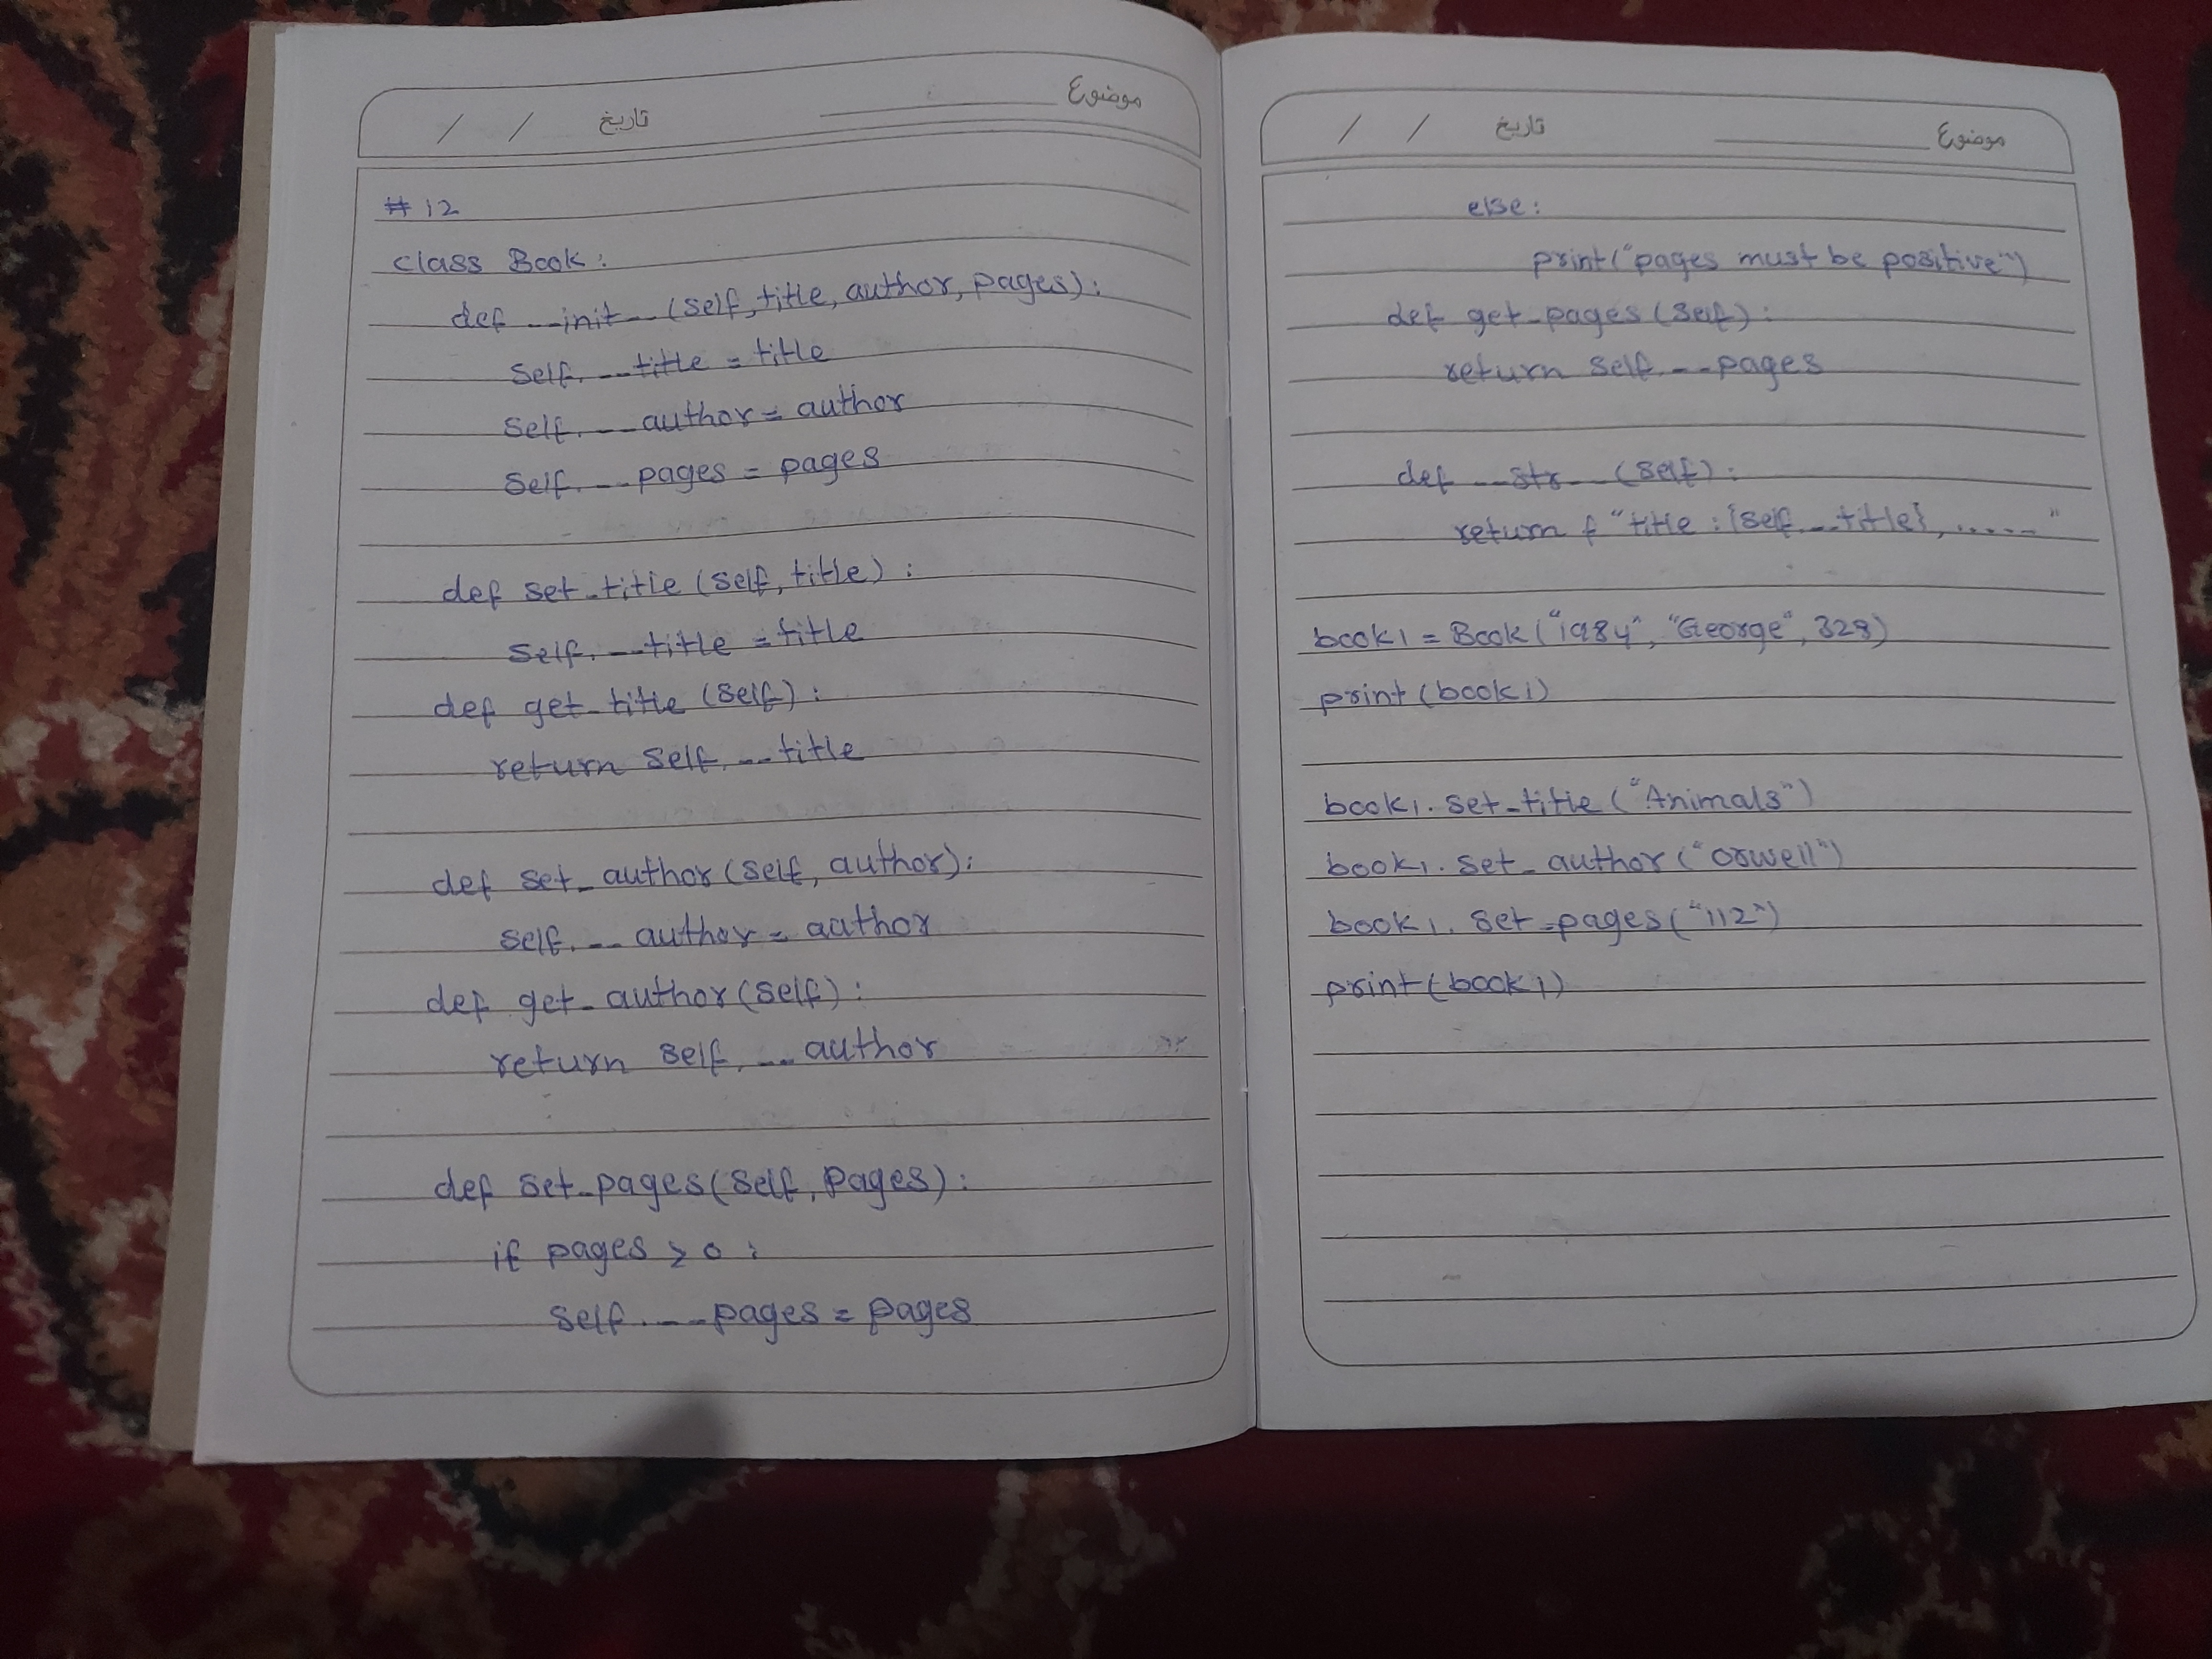 / / تاریخ موضوع
# 12
class Book:
def __init__(self, title, author, pages):
self.__title = title
self.__author = author
self.__pages = pages
def set_title(self, title):
self.__title = title
def get_title(self):
return self.__title
def set_author(self, author):
self.__author = author
def get_author(self):
return self.__author
def set_pages(self, pages):
if pages > 0:
self.__pages = pages
/ / تاریخ موضوع
else:
print("pages must be positive")
def get_pages(self):
return self.__pages
def __str__(self):
return f"title:{self.__title}, ....."
book1 = Book("1984", "George", 328)
print(book1)
book1.set_title("Animals")
book1.set_author("orwell")
book1.set_pages("112")
print(book1)